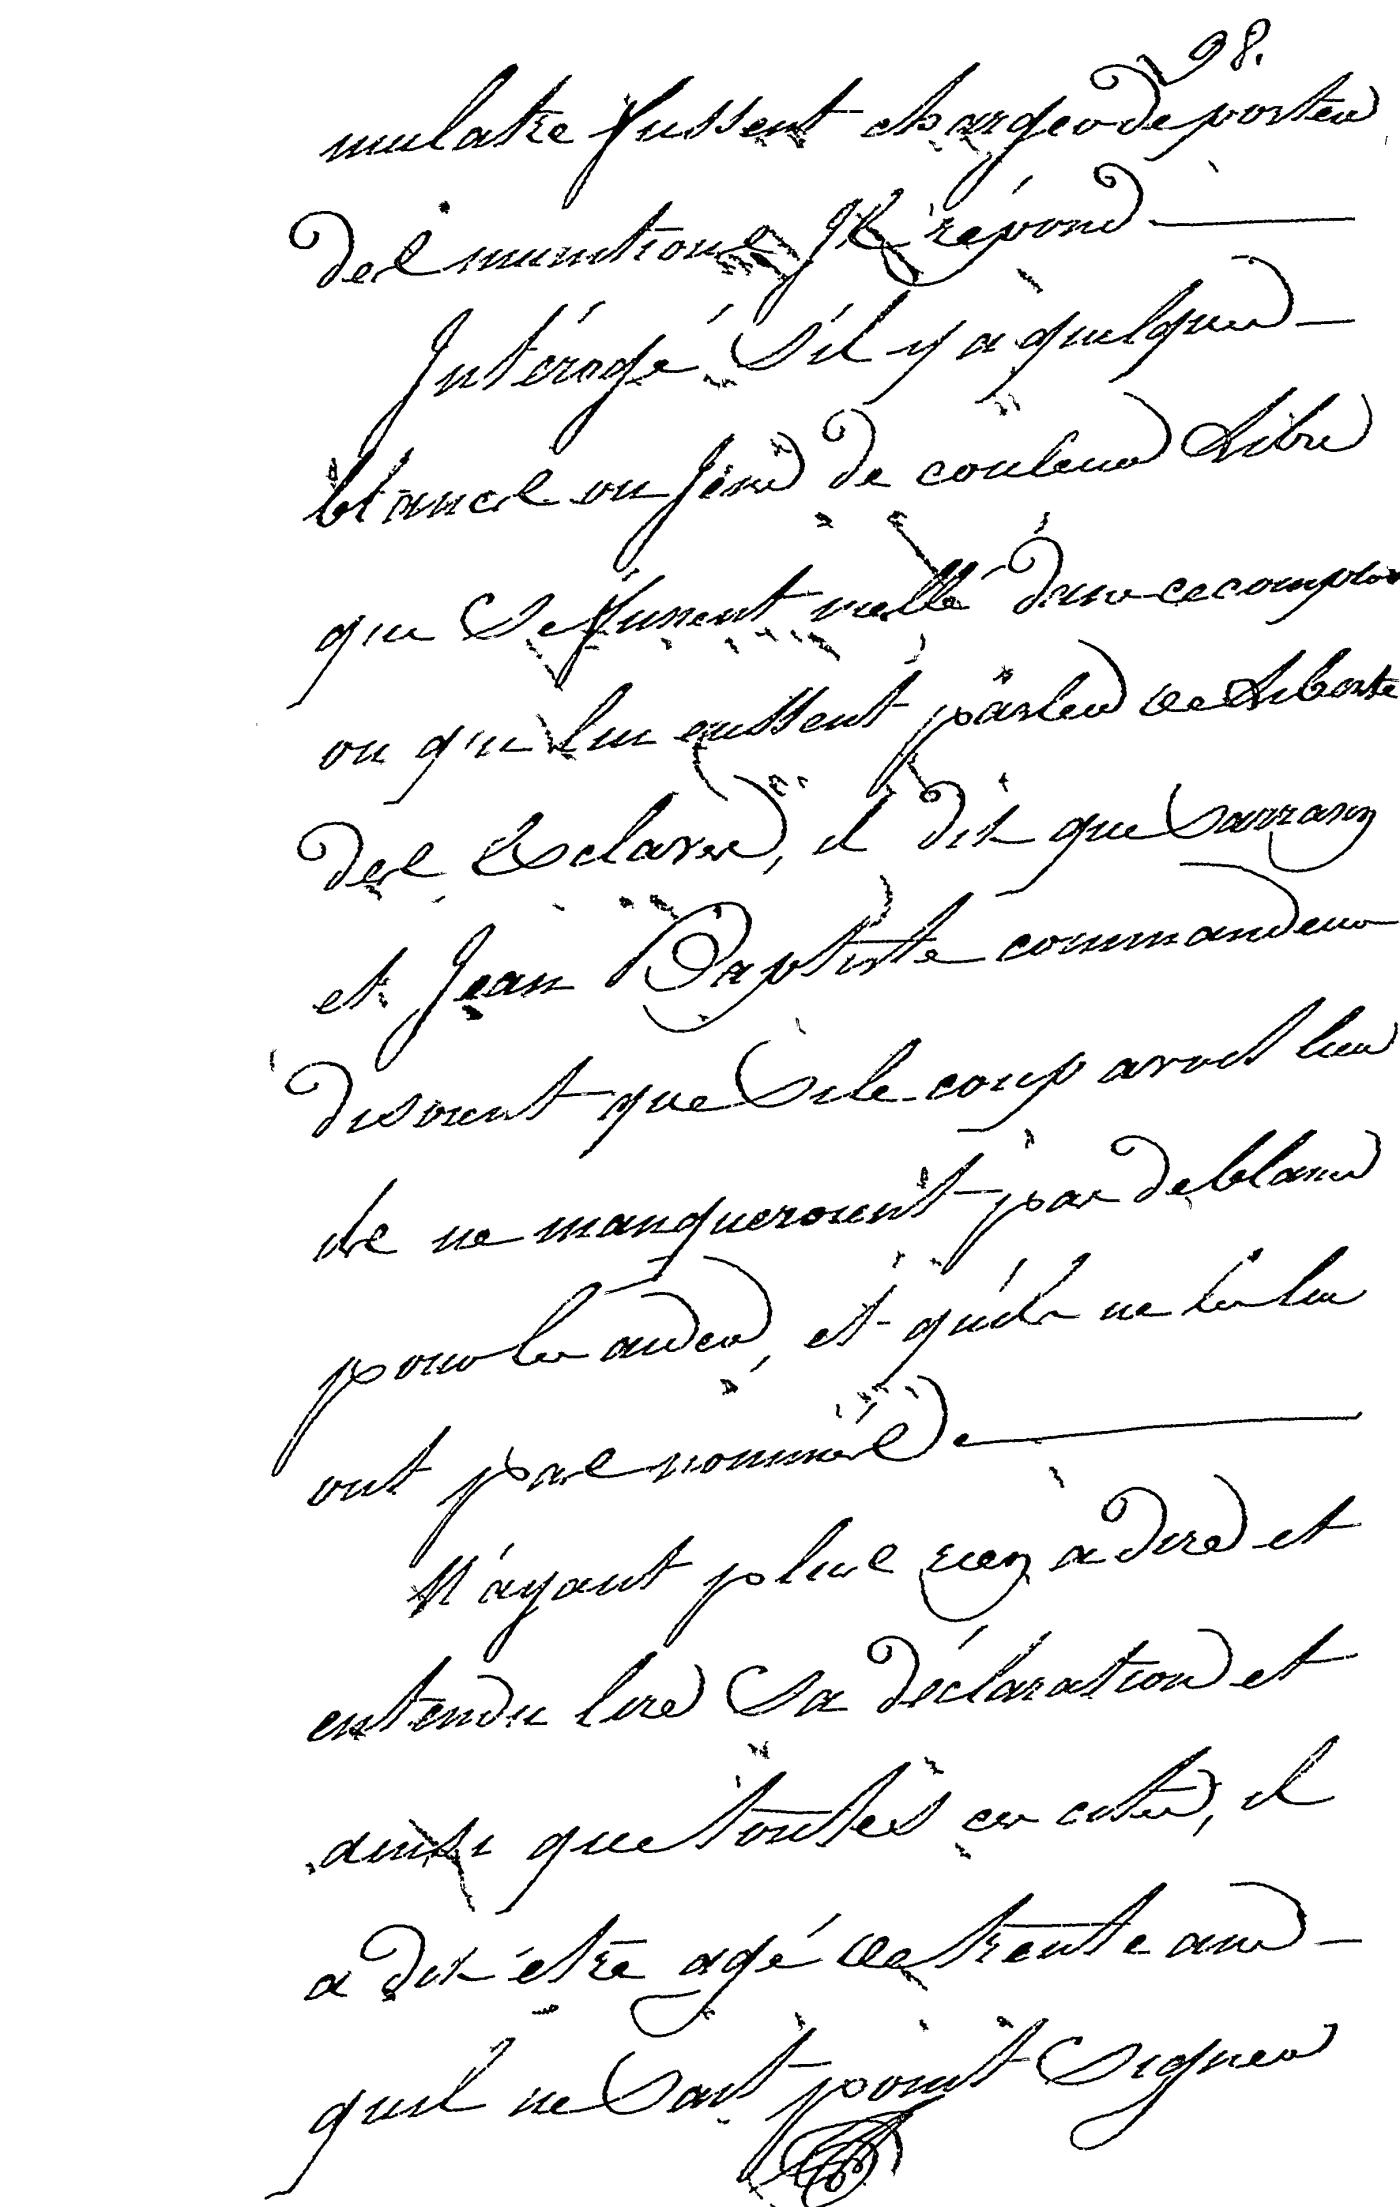 98.
mulatre fussent chargés de porter
des munitions Il répond
Intérogé s'il y a quelques
blancs ou Jens de couleur Libre
qui se fussent mellé dans ce complot
ou qui lui eussent parler de Liberté
des Esclaves, il dit que Sarrazin
et Jean Baptiste commandeur
disoient que si le coup avoit lieu
ils ne manqueroient pas de blancs
pour les aider, et qu'ils ne les lui
ont pas nommés
N'ayant plus rien a dire et
entendu lire sa déclaration et
ainsi que toutes ces cites, il
a dit être agé de trente ans
quil ne sait point signer